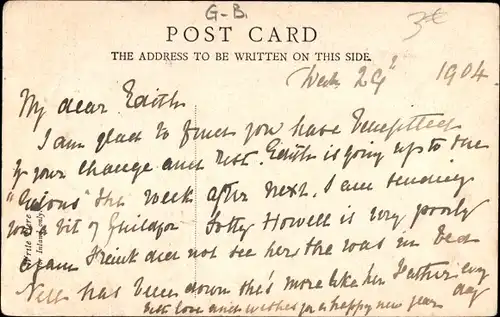 G-B.
POST CARD
THE ADDRESS TO BE WRITTEN ON THIS SIDE.
1904
My dear Edith
I am glad to find you have benefitted
by your change and rest. Edith is going up to the
"Unions" the week after next. I am sending
you a bit of Guildford Lotty Howell is very poorly
again Frank did not see her she was in bed
Nell has been down she's more like her Father every
day
best love and wishes for a happy new year